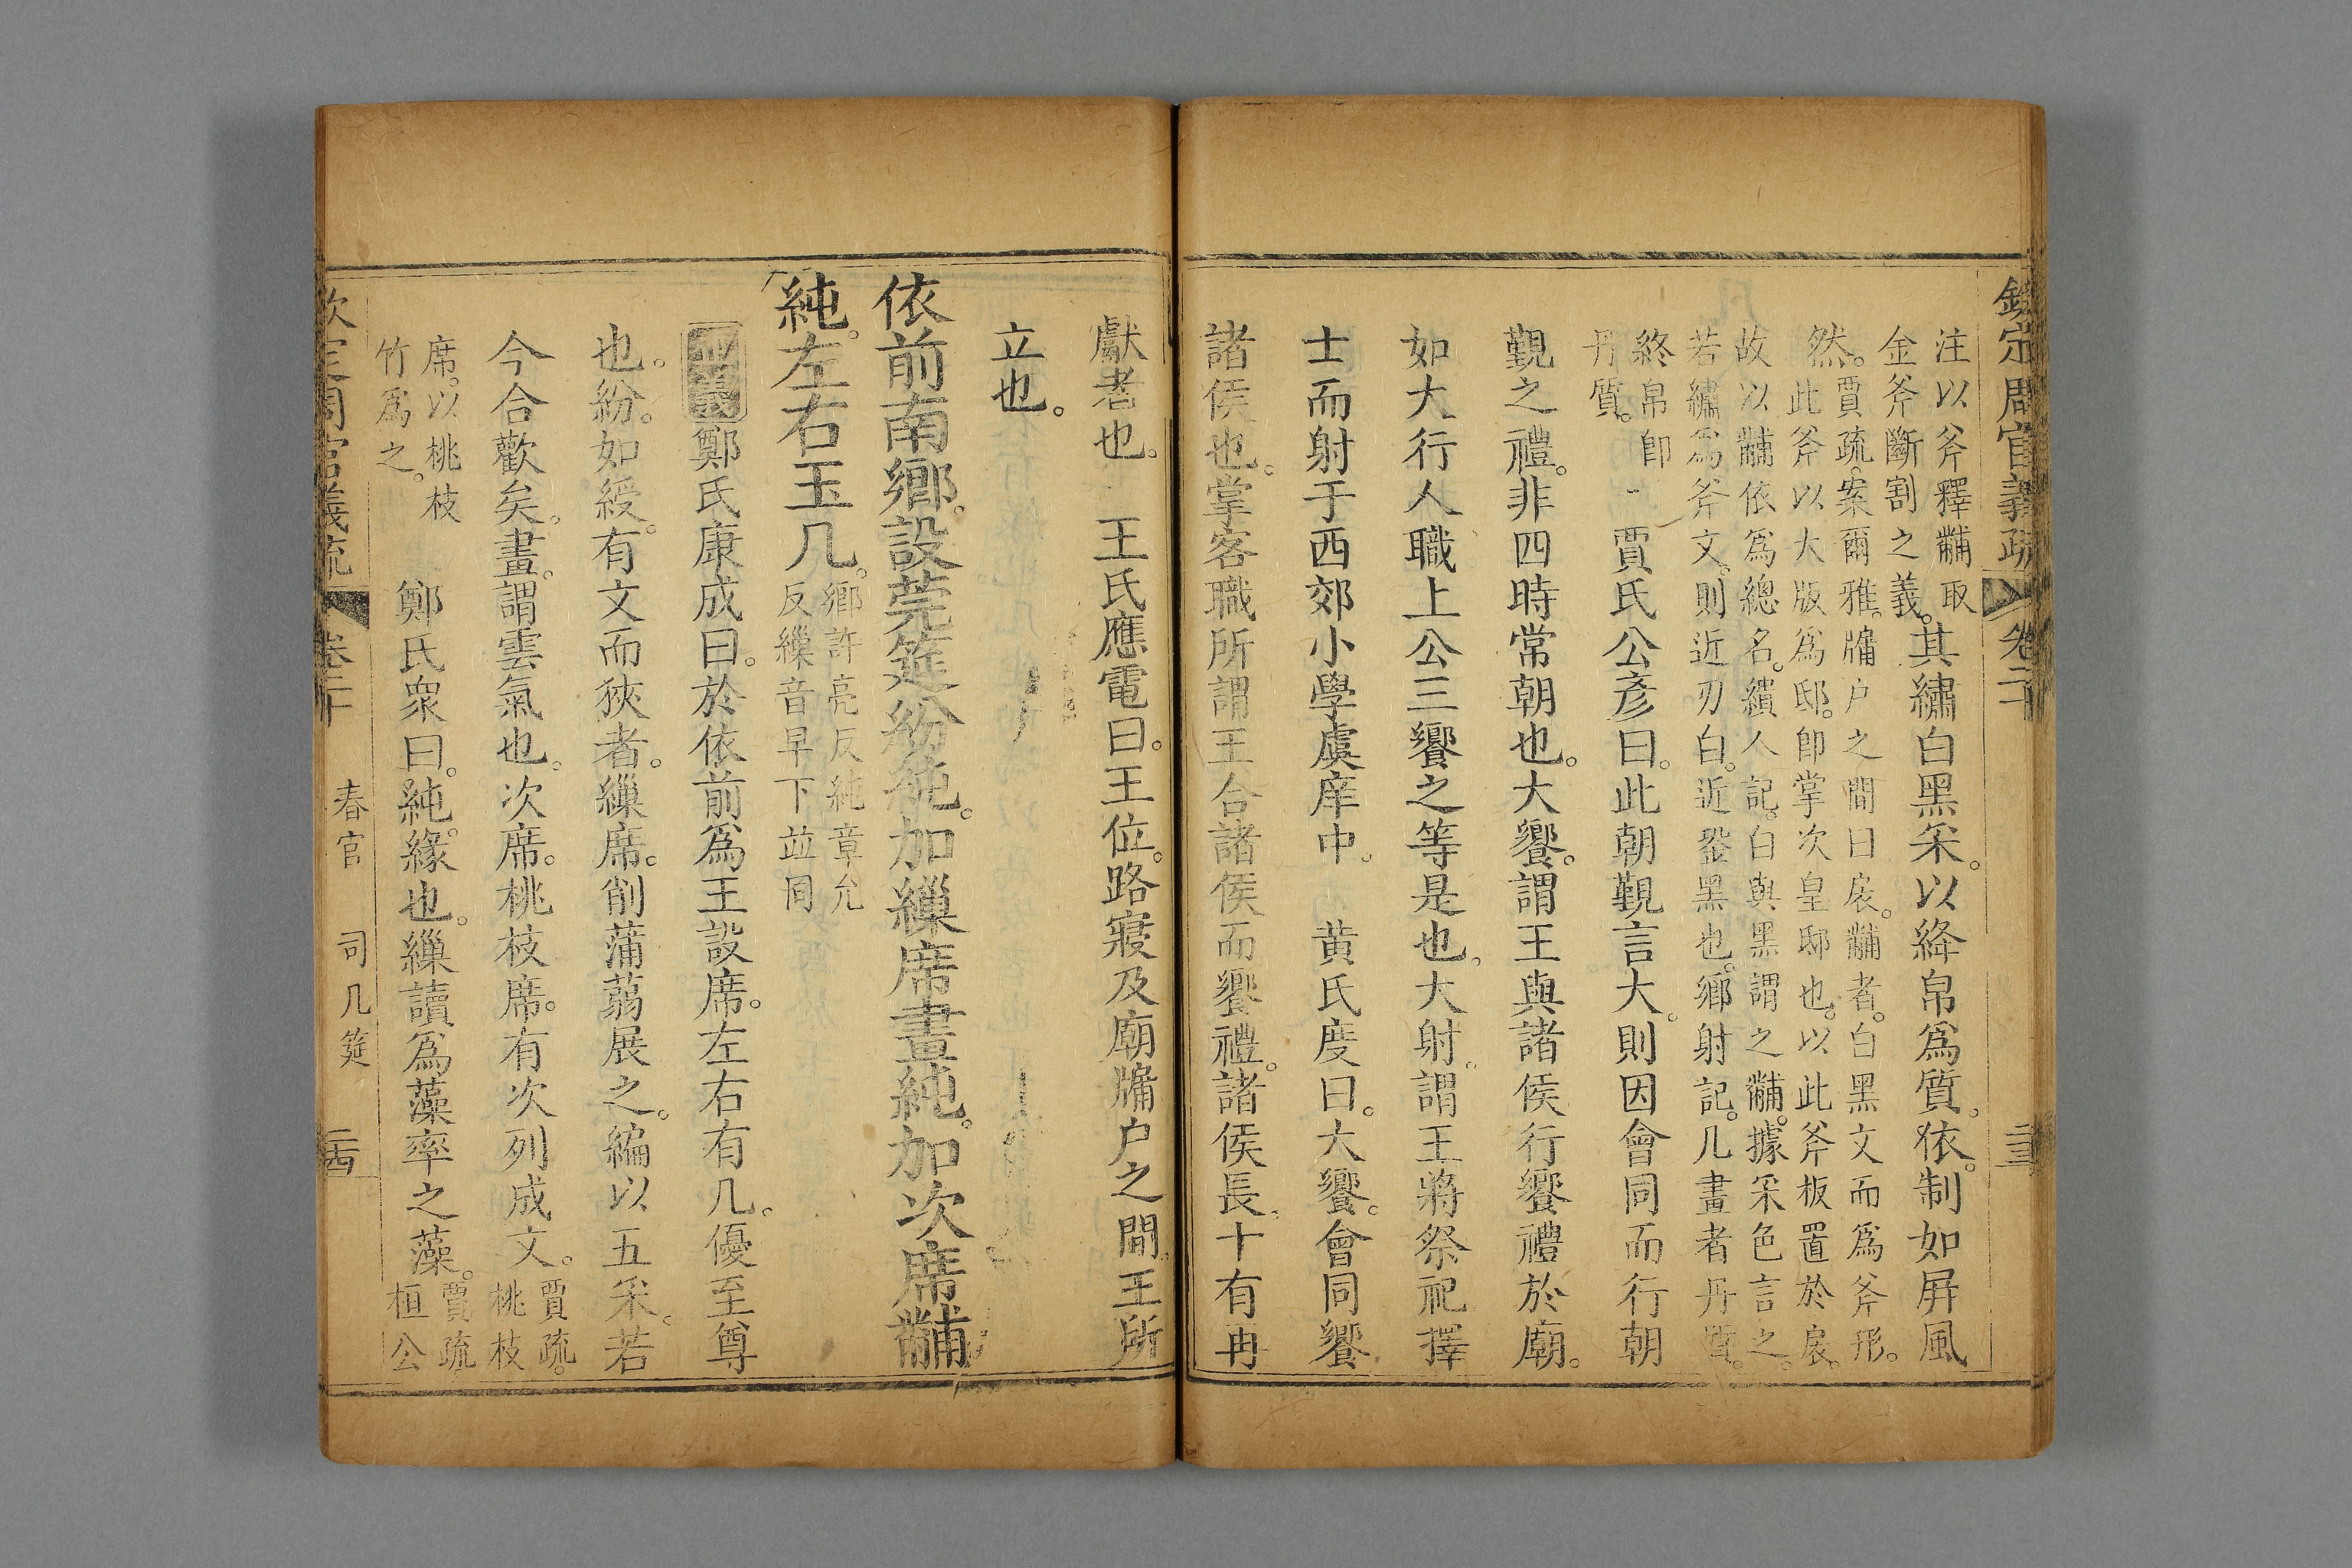 欽定周官義疏 卷二十 二三
注以斧釋黼取
金斧斷割之義。其繡白黑采。以絳帛為質。依。制如屛風
然。賈疏。案爾雅。牖户之間曰扆。黼者。白黑文而爲斧形。
此斧以大版爲邸。卽掌次皇邸也。以此斧板置於扆。
故以黼依爲總名。繢人記。白與黑謂之黼。據采色言之。
若繡爲斧文。則近刃白。近銎黑也。鄉射記。凡畫者丹質。
終帛卽
丹質。 賈氏公彥曰。此朝覲言大。則因會同而行朝
覲之禮。非四時常朝也。大饗。謂王與諸侯行饗禮於廟。
如大行人職上公三饗之等是也。大射。謂王將祭祀擇
士而射于西郊小學虞庠中。 黄氏度曰。大饗。會同饗
諸侯也。掌客職所謂王合諸侯而饗禮。諸侯長十有再
獻者也。 王氏應電曰。王位。路寢及廟牖户之間。王所
立也。
依前南鄉。設莞筵紛純。加繅席畫純。加次席黼
純。左右玉几。鄉許亮反純章允
反繅音早下並同
鄭氏康成曰。於依前爲王設席。左右有几。優至尊
也。紛。如綬。有文而狹者。繅席。削蒲蒻展之。編以五采。若
今合歡矣。畫。謂雲氣也。次席。桃枝席。有次列成文。賈疏。
桃枝
席。以桃枝
竹爲之。 鄭氏衆曰。純。緣也。繅讀爲藻率之藻。賈疏。
桓公
欽定周官義疏 卷二十 春官 司几筵 二四